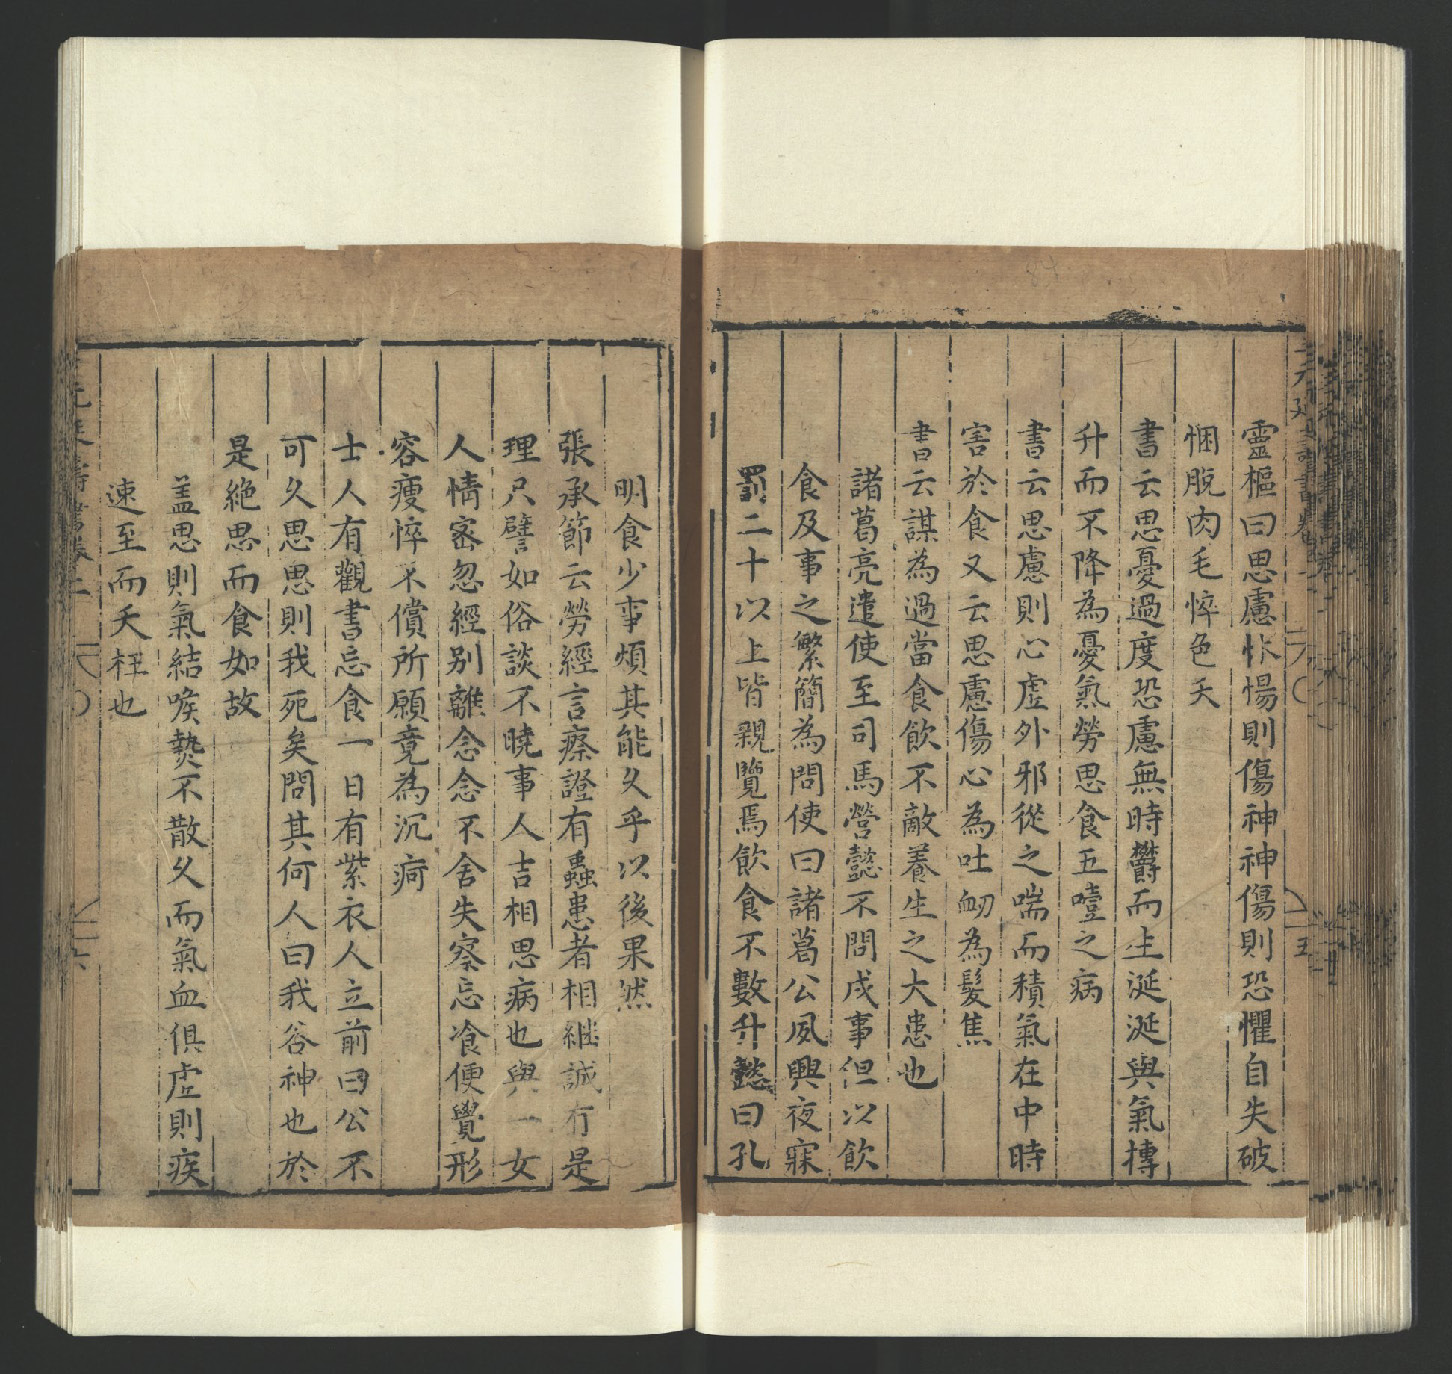 靈樞曰思慮怵惕則傷神神傷則恐懼自失破
悃脫肉毛悴色夭
書云思憂過度恐慮無時欝而生涎涎與氣摶
升而不降為憂氣勞思食五噎之病
書云思慮則心虛外邪從之喘而積氣在中時
害於食又云思慮傷心為吐衂為髮焦
書云謀為過當食飲不敵養生之大患也
諸葛亮遣使至司馬營懿不問戎事但以飲
食及事之繁簡為問使曰諸葛公夙興夜寐
罰二十以上皆親覽焉飲食不數升懿曰孔
明食少事煩其能久乎以後果然
張承節云勞經言瘵證有蟲患者相継誠有是
理只譬如俗談不曉事人吉相思病也與一女
人情密忽經别離念念不舍失寐忘飡便覺形
容瘦悴不償所願竟為沉痾
士人有觀書忘食一日有紫衣人立前曰公不
可久思思則我死矣問其何人曰我谷神也於
是絶思而食如故
盖思則氣結喉㙯不散久而氣血俱虛則疾
速至而夭枉也